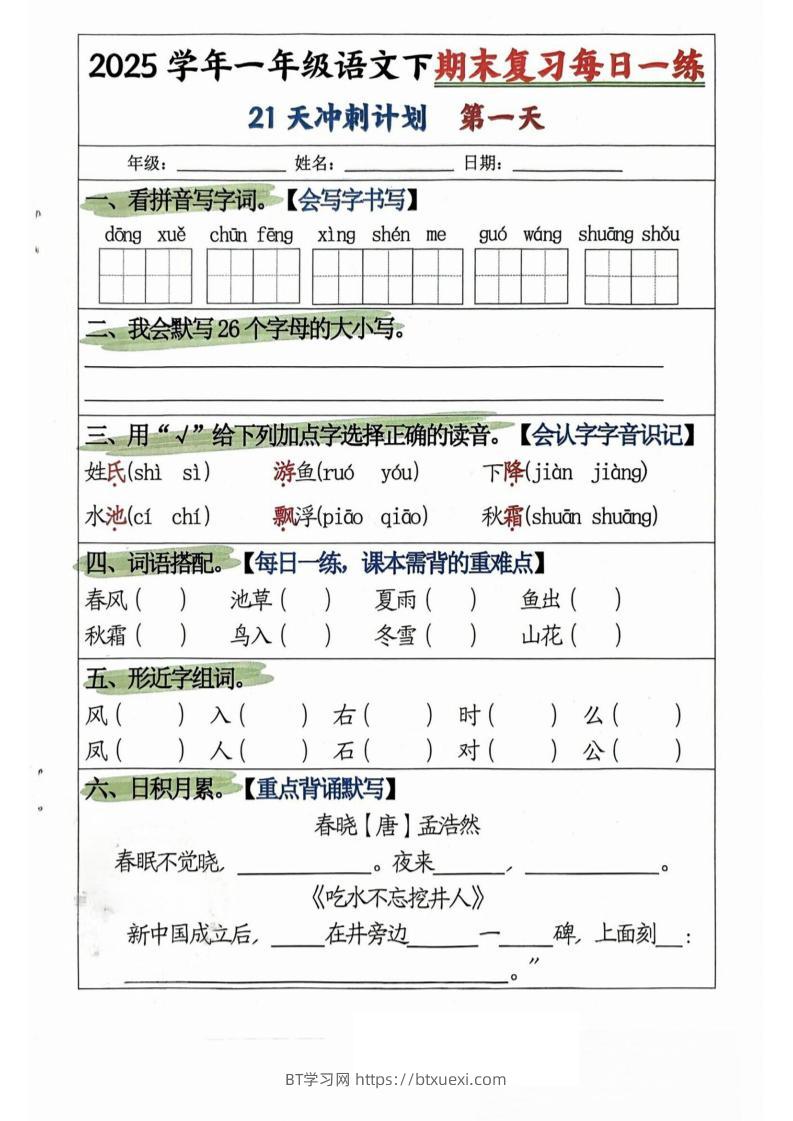 2025 学年一年级语文下期末复习每日一练
21 天冲刺计划 第一天
年级：________ 姓名：________ 日期：________
一、看拼音写字词。【会写字书写】
dōng xuě chūn fēng xìng shén me guó wáng shuāng shǒu
二、我会默写 26 个字母的大小写。
三、用“√”给下列加点字选择正确的读音。【会认字字音识记】
姓氏(shì sì) 游鱼(ruó yóu) 下降(jiàn jiàng)
水池(cí chí) 飘浮(piāo qiāo) 秋霜(shuān shuāng)
四、词语搭配。【每日一练，课本需背的重难点】
春风（ ） 池草（ ） 夏雨（ ） 鱼出（ ）
秋霜（ ） 鸟入（ ） 冬雪（ ） 山花（ ）
五、形近字组词。
风（ ） 入（ ） 右（ ） 时（ ） 么（ ）
凤（ ） 人（ ） 石（ ） 对（ ） 公（ ）
六、日积月累。【重点背诵默写】
春晓【唐】孟浩然
春眠不觉晓，________。夜来____，________。
《吃水不忘挖井人》
新中国成立后，____在井旁边____一____碑，上面刻__：
________________。”
BT学习网 https://btxuexi.com